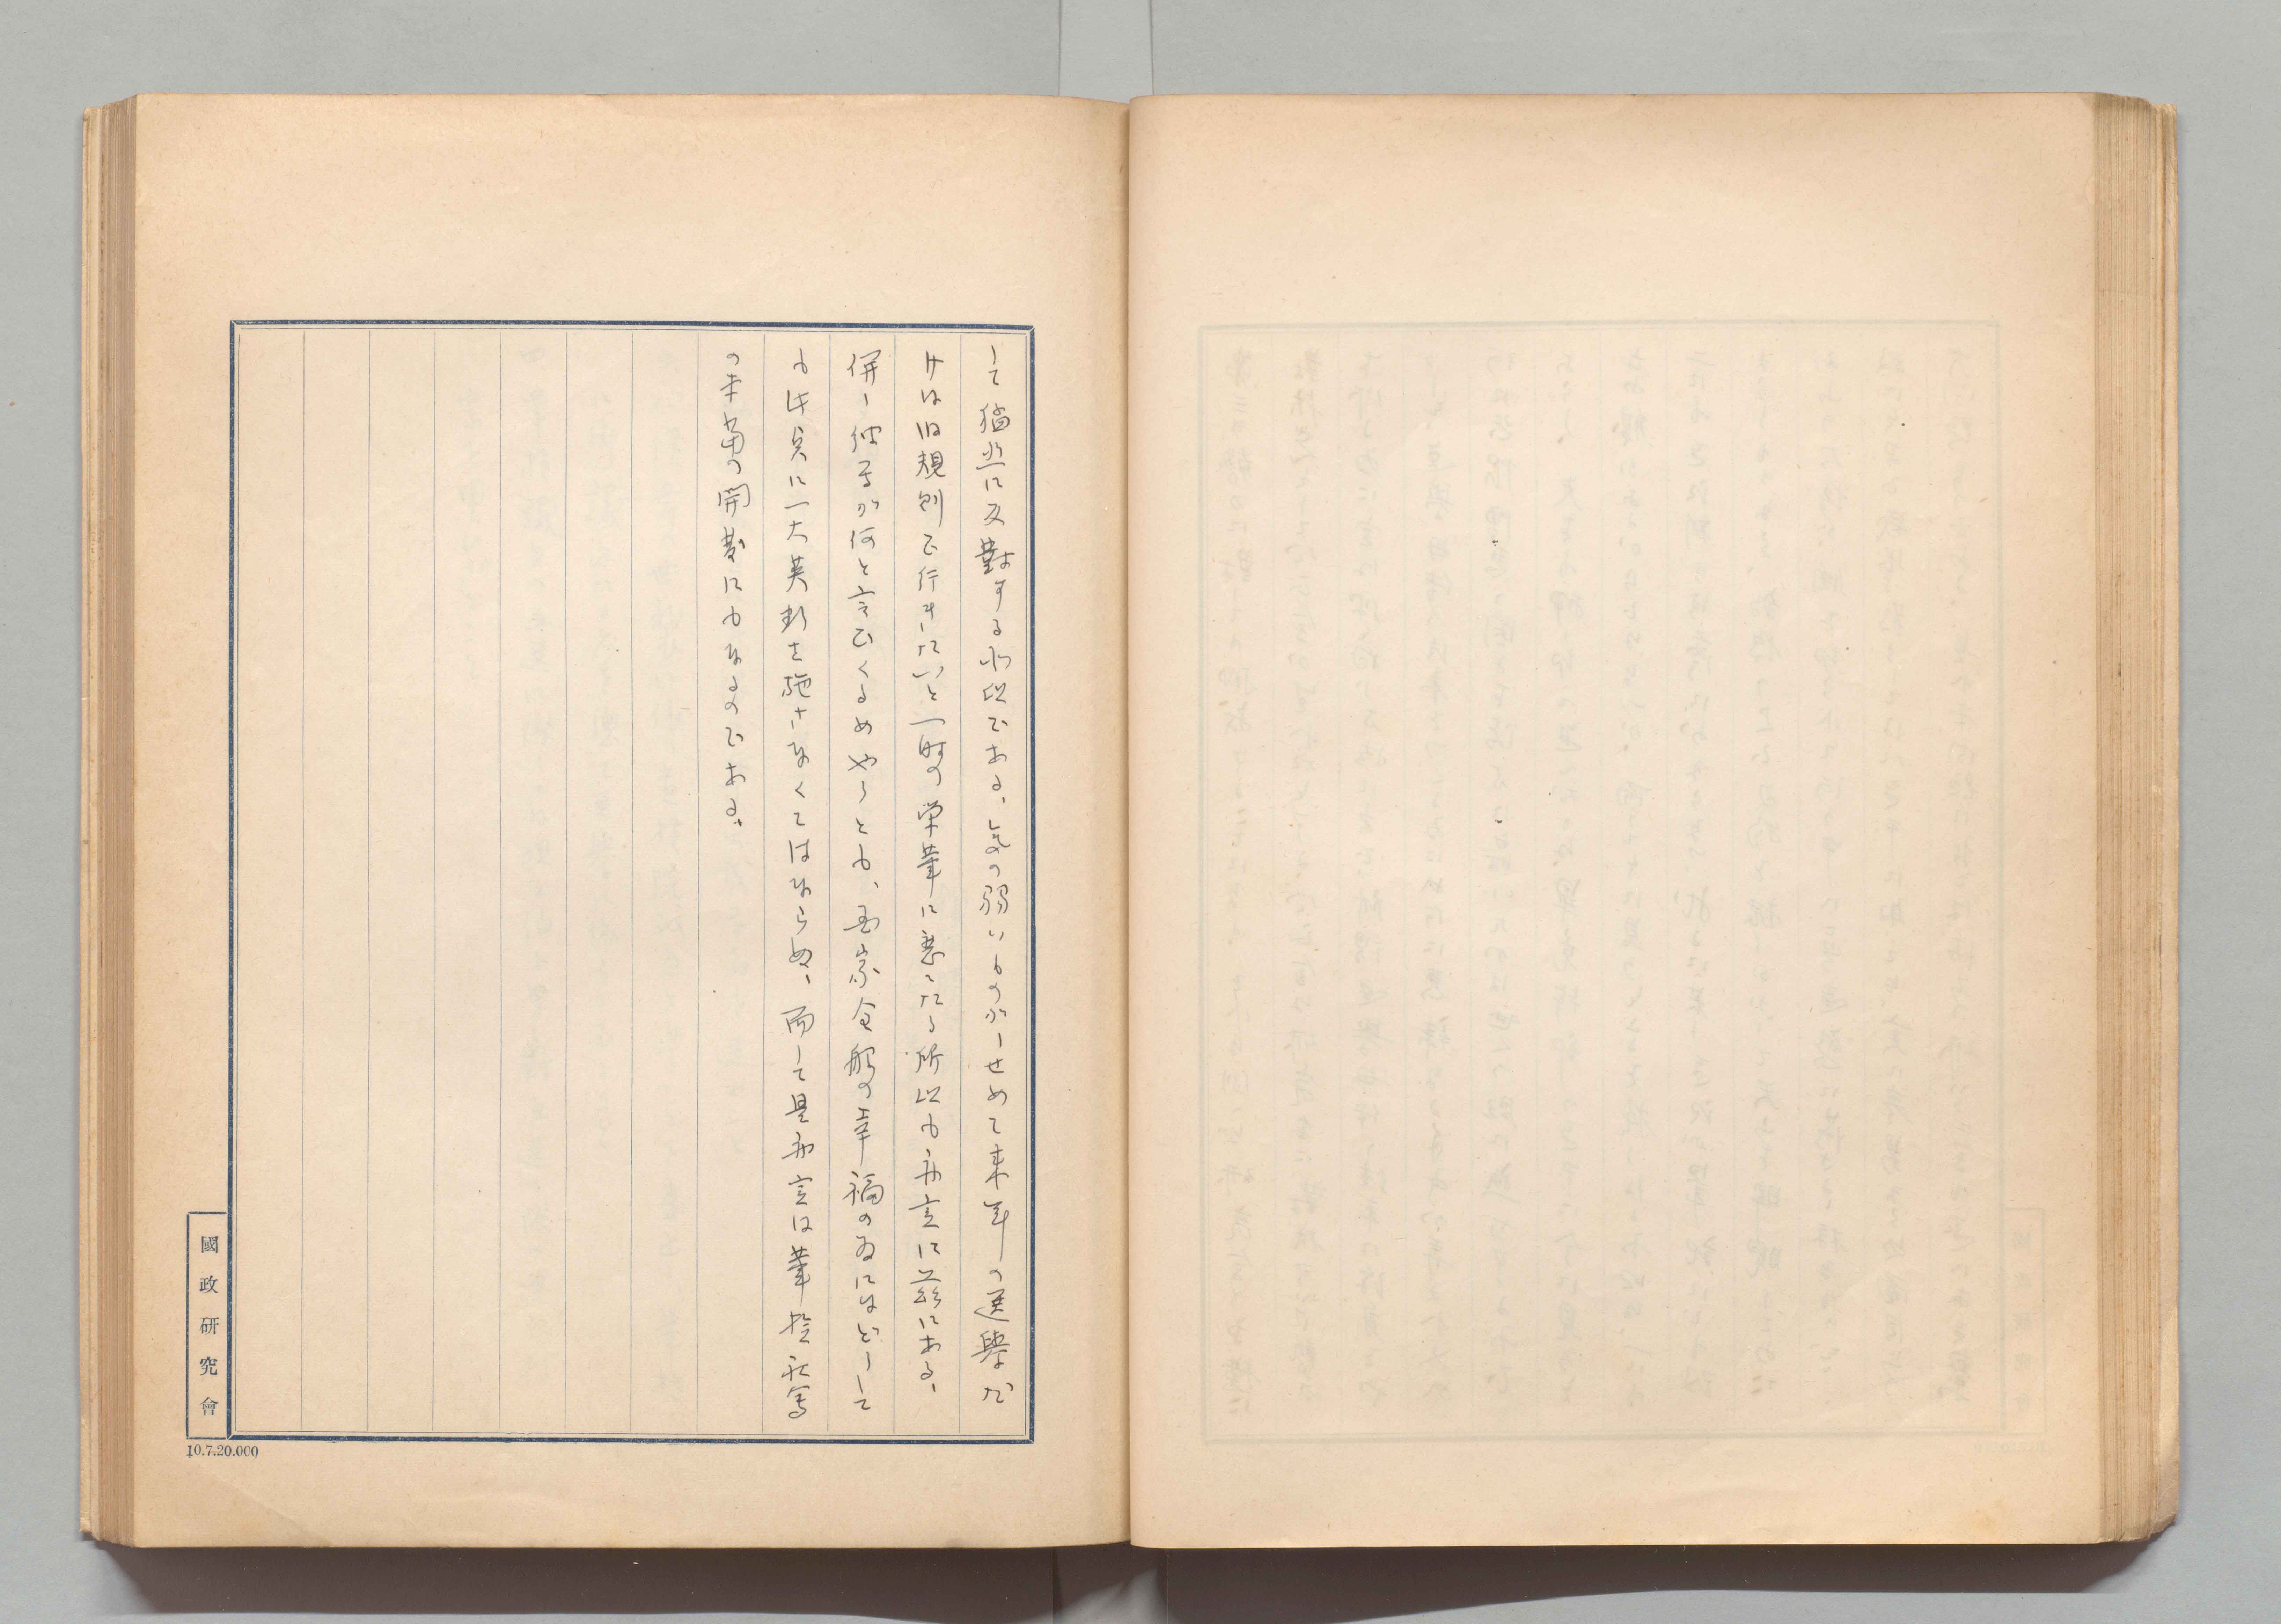 して猛烈に反對する所以である、気の弱いものがーせめて来年の選擧だ
けは旧規則で行きたいと一時の栄華に恋々たる所以も亦実に茲にある、
併し彼等が何と言ひくるめやうとも、国家全般の幸福の為にはどうして
も此点に一大英断を施さなくてはならぬ、而して是亦実は
の本當の開發にもなるのである、
國政研究會
10.7.20.000